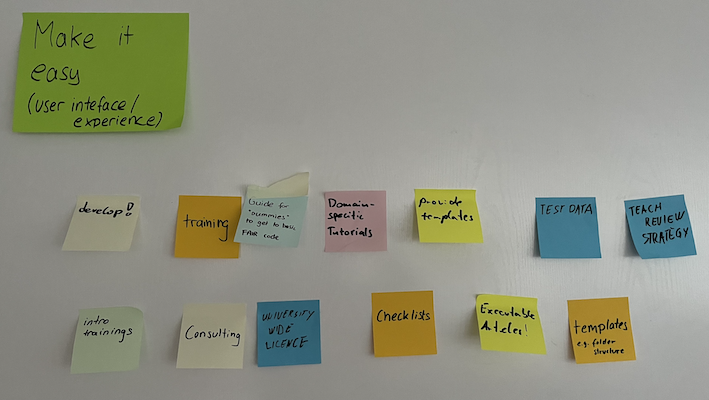 Make it
easy
(user inteface/
experience)
develop!
training
Guide for
"dummies"
to get to basic
FAIR code
Domain-
specific
Tutorials
Provide
templates
TEST DATA
TEACH
REVIEW
STRATEGY
intro
trainings
Consulting
UNIVERSITY
WIDE
LICENCE
Checklists
Executable
Articles!
templates
e.g. folder
structure